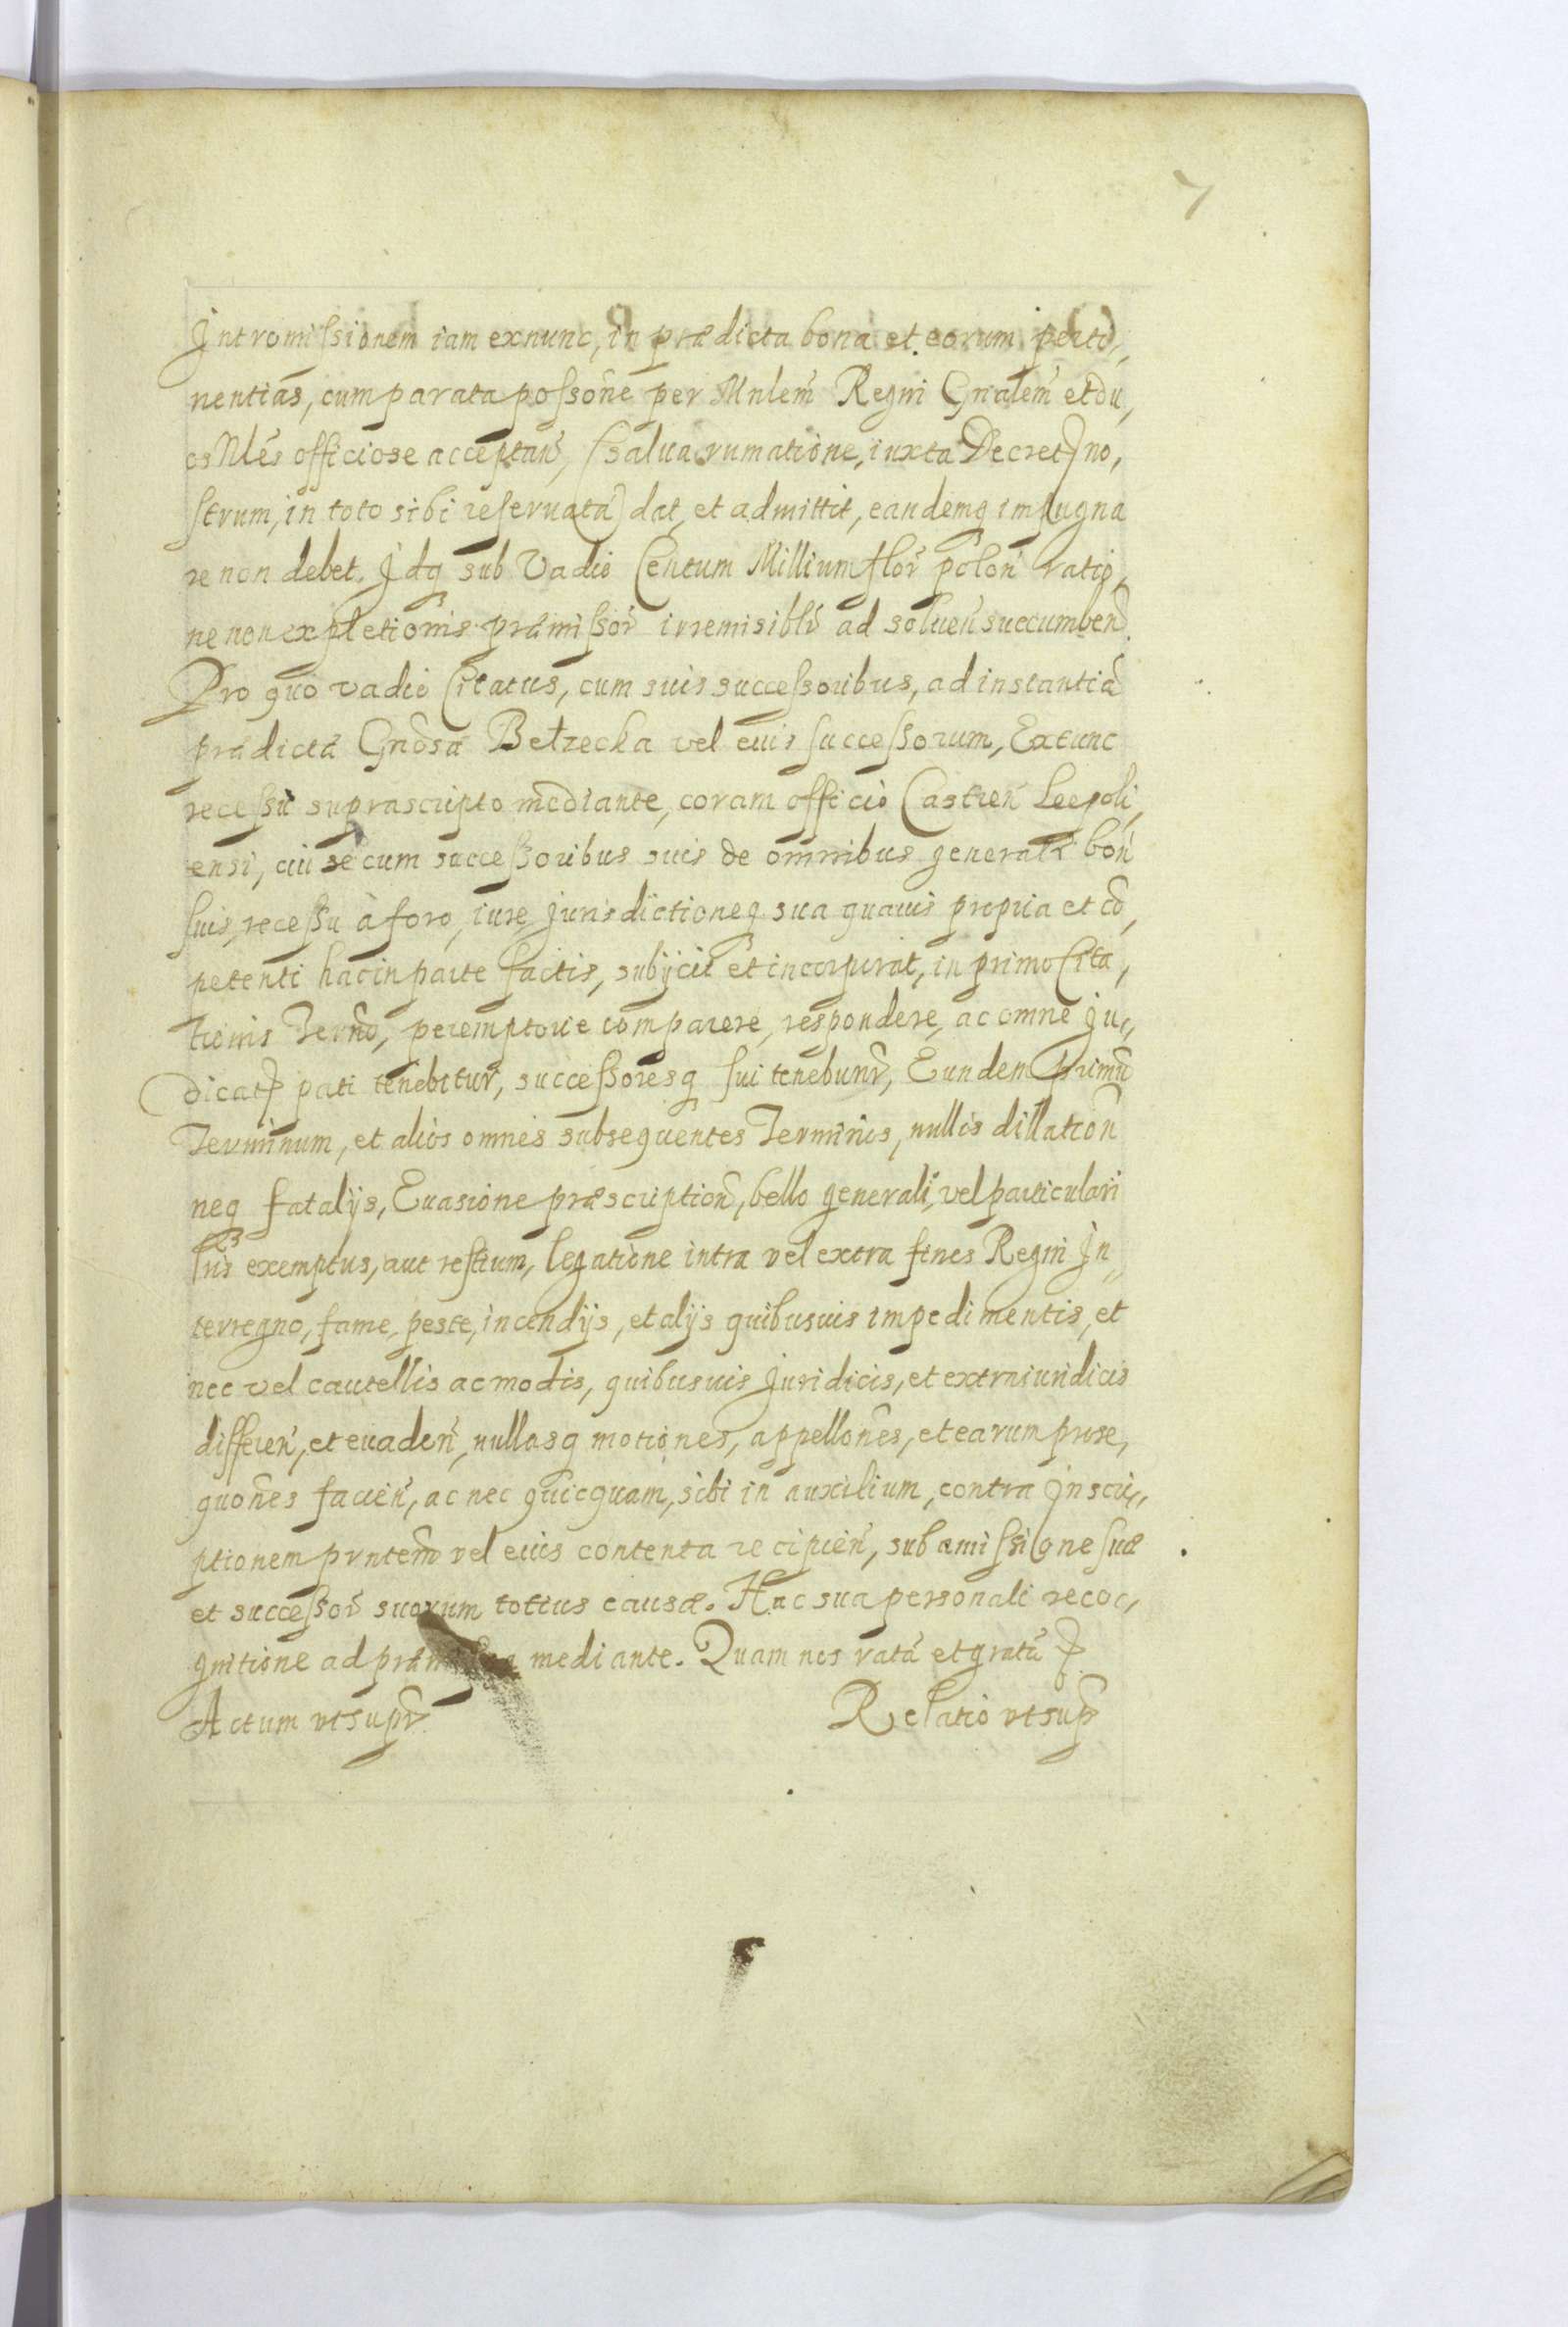 7
Intromissionem iam exnunc, in prædicta bona et eorum perti,,
nentias, cum parata possone per Mnlem Regni Gnalem et du,
os Nles officiose acceptan, (salua rumatione, iuxta Decret no,
strum, in toto sibi reseruata) dat, et admittit, eandemq impugna
re non debet. Idq sub Vadio Centum Millium flor polon ratio,
ne non expletionis præmissor irremisiblr ad soluen succumben.
Pro quo vadio Citatus, cum suis successoribus, ad instantiā
prædictæ Gnosæ Bełzecka vel eius successorum, Extunc
recessu suprascripto mediante, coram officio Castren Leopoli,
ensi, cui se cum successoribus suis de omnibus generalr bon
suis, recessu à foro, iure, Jurisdictioneq sua quauis propria et cō,
petenti hac in parte factis, subijcit et incorporat, in primo Cita,
tionis Termo, peremptorie comparere, respondere, ac omne Ju,,
dicat pati tenebitur, successoresq sui tenebunr, Eundem Primū
Terminum, et alios omnes subsequentes Terminos, nullis dillation
neq fatalijs, Euasione præscription, bello generali, vel particulari
suis exemptus, aut restium, legatione intra vel extra fines Regni In,,
terregno, fame, peste, incendijs, et alijs quibusuis impedimentis, et
nec vel cautellis ac modis, quibusuis Juridicis, et extraiuridicis
differen, et euaden, nullasq motiones, appellones, et earum prose,
quones facien, ac nec quicquam, sibi in auxilium, contra Inscri,,
ptionem prntem vel eius contenta recipien, sub amissione suæ
et successor suorum totius causæ. Hac sua personali recog,
gnitione ad præmissa mediante. Quam nos ratā et gratā
Actum vt supr. Relatio vt sup